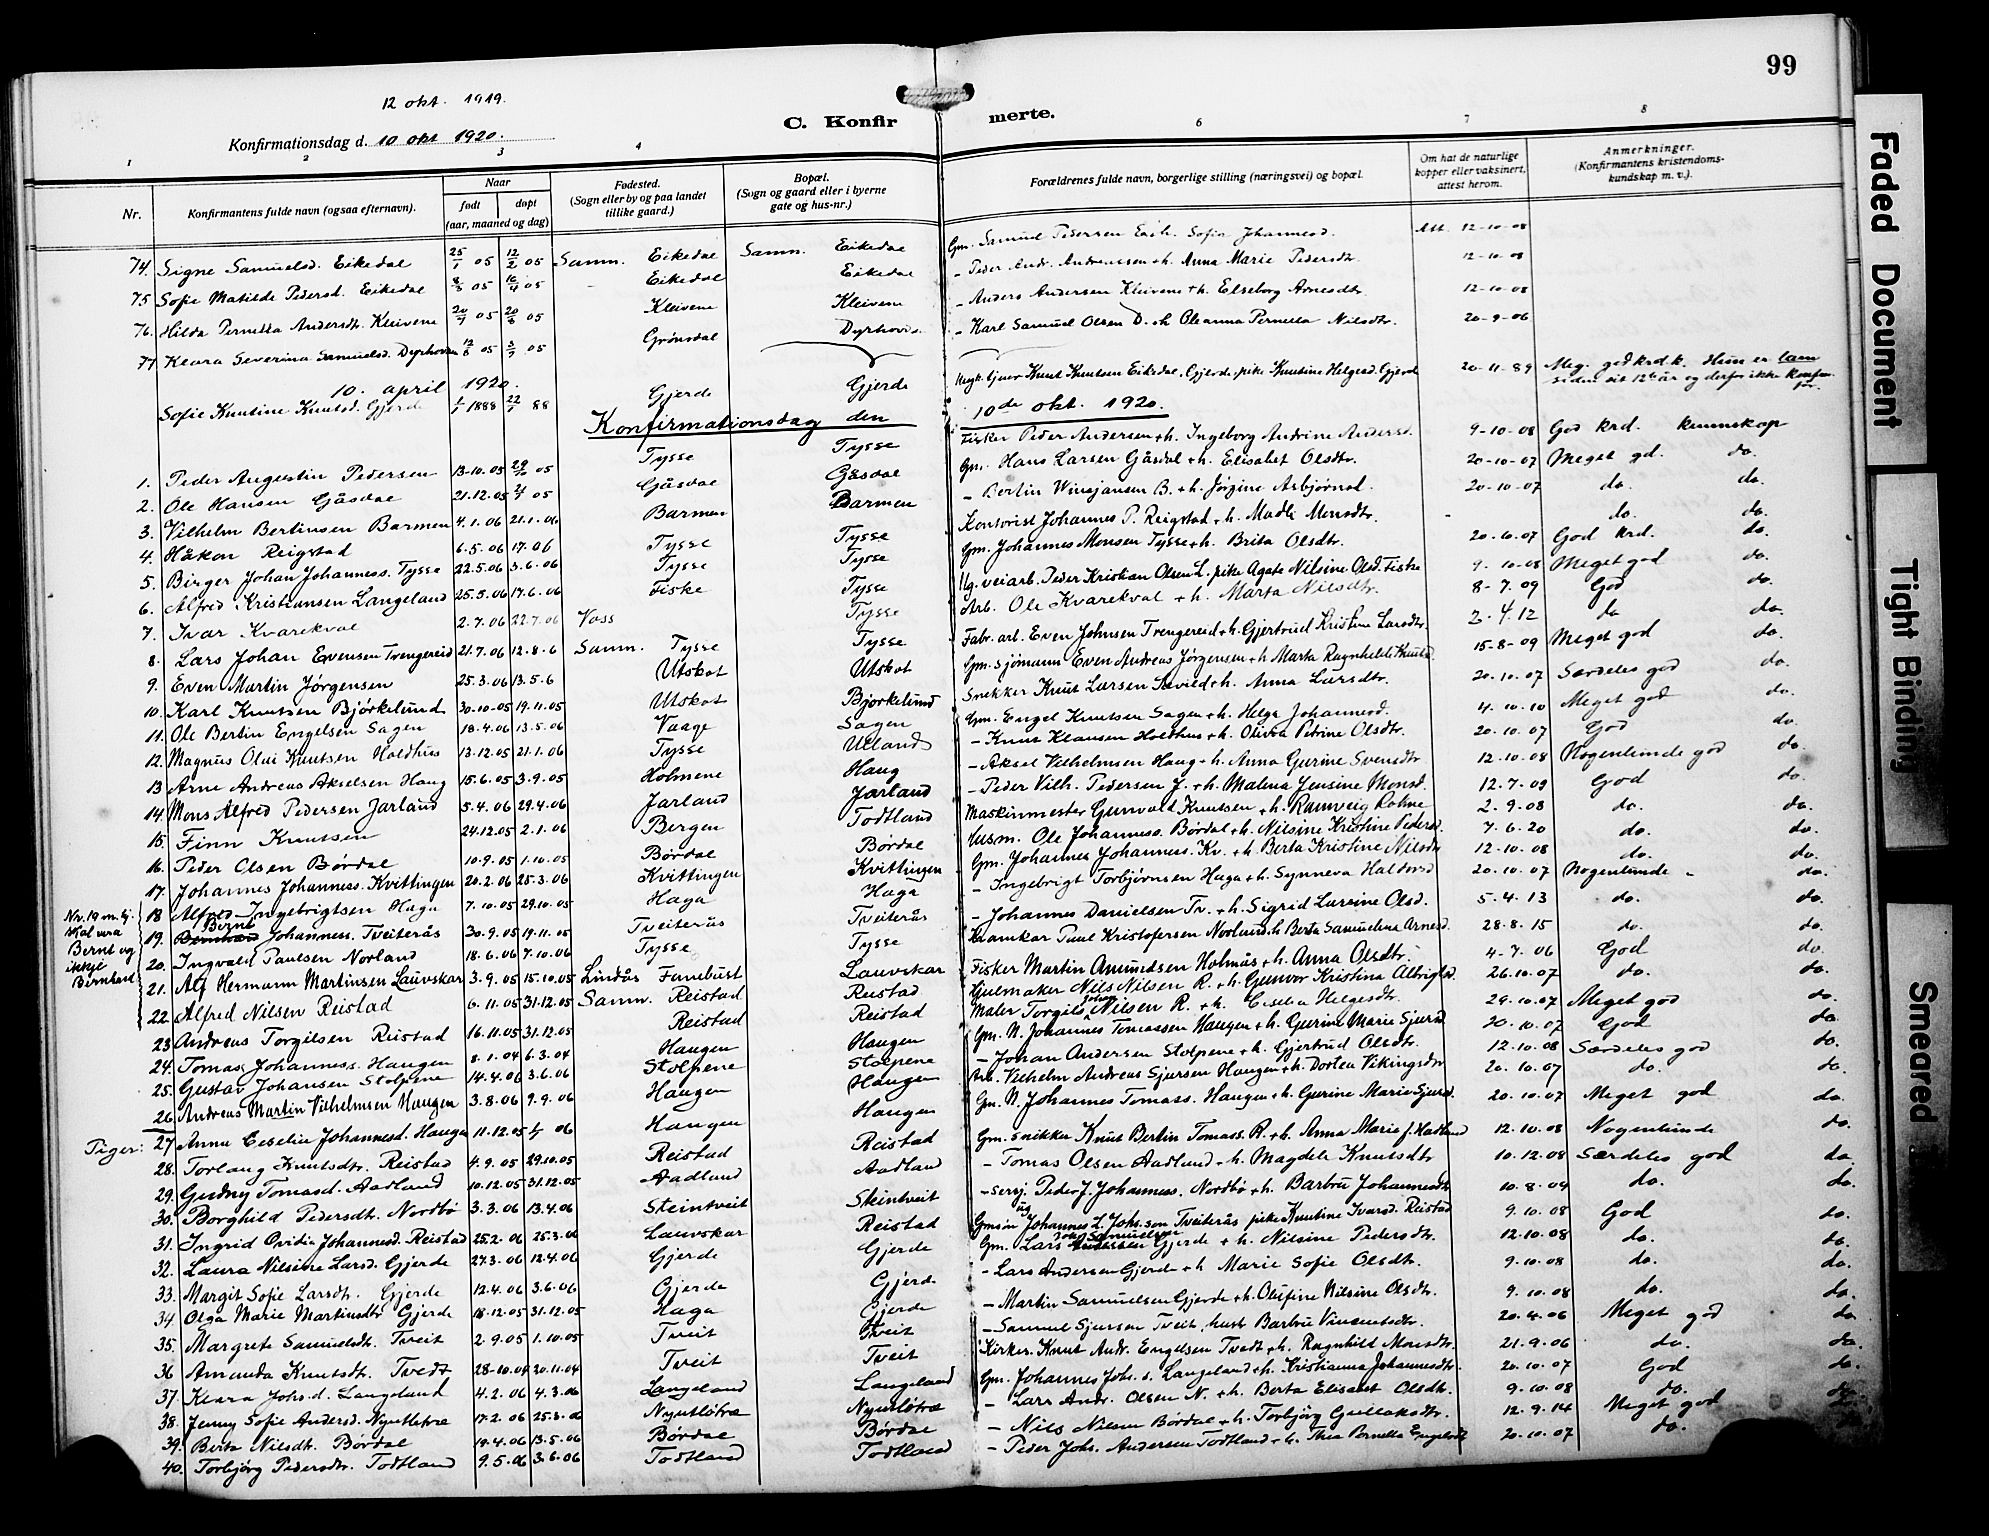 99
12 okt. 1919.
Konfirmationsdag d. 10 okt 1920.
C. Konfirmerte.
1 2 3 4 6 7 8
Nr. Konfirmantens fulde navn (ogsaa efternavn). Naar født døpt (aar, maaned og dag) Fødested. (Sogn eller by og paa landet tillike gaard.) Bopæl. (Sogn og gaard eller i byerne gate og hus-nr.) Forældrenes fulde navn, borgerlige stilling (næringsvei) og bopæl. Om hat de naturlige kopper eller vaksinert, attest herom. Anmerkninger. (Konfirmantens kristendomskundskap m. v.).
74. Signe Samuelsd. Eikedal 25/1 05 12/2 05 Samn. Eikedal Samn. Eikedal Gm. Samuel Pedersen E.+h. Sofie Johannesd. Att. 12-10-08
75 Sofie Matilde Pedersd. Eikedal 8/3 05 16/4 05 - Eikedal Eikedal - Peder Andr. Andreassen +h. Anna Marie Pedersdtr. 12-10-08
76. Hilda Pernella Andersdt. Kleivene 20/7 05 20/8 05 Kleivene Kleivene - Anders Andersen Kleivene +h. Elseborg Arnesdtr. 12-10-08
77 Klara Severina Samuelsd. Dyrhovden 12/8 05 3/9 05 Grønsdal Dyrhovd. - Karl Samuel Olsen D. +h Oleanna Pernella Nilsdtr. 20-9-06
10. april 1920.
Sofie Knutine Knutsd. Gjerde 1/1 1888 22/1 88 Gjerde Gjerde Ungk. Knut Knutsen Eikedal, Gjerde, pike Knutine Helgesd. Gjerde 20-11-89 Meg. god krd.k. Hun er lam siden sit 12te år og derfor ikke konf. før.
Konfirmationsdag den 10de okt. 1920.
1. Peder Augustin Pedersen 13-10.05 29/10 05 Tysse Tysse Fisker Peder Andersen +h. Ingeborg Andrine Andersd. 9-10-08 God krd. kunnskap
2. Ole Hansen Gåsdal 21.12.05 05 Gåsdal Gåsdal Gm. Hans Larsen Gåsdal +h. Elisabet Olsdtr. 20-10-07 Meget gd. do.
3. Vilhelm Bertinsen Barmen 4.1.06 21.1.06 Barmen Barmen - Bertin Winsjansen B. +h. Jørgine Asbjørnsd. 20-10-07 do. do.
4. Håkon Reigstad 6.5.06 17.06 Tysse Tysse Kontorist Johannes P. Reigstad +h. Madli Monsdtr. - do. do.
5. Birger Johan Johanness. Tysse 22.5.06 3.6.06 Tysse Tysse Gm. Johannes Monsen Tysse +h. Brita Olsdtr. 20.10.07 God krd. do.
6. Alfred Kristiansen Langeland 25.5.06 17.6.06 Fiske Tysse Ug. veiarb. Peder Kristian Olsen L. pike Agate Nilsine Olsd. Fiske 9.10-08 Meget god do.
7. Ivar Kvarekval 2.7.06 22.7.06 Voss Tysse Arb. Ole Kvarekval +h. Marta Nilsdtr. 8-7.09 God do.
8. Lars Johan Evensen Trengereid 21.7.06 12.8.6 Samn. Tysse Tysse Fabr. arb. Even Johnsen Trengereid +h. Gjertrud Kristine Larsdtr. 2.4.12 do do.
9. Even Martin Jørgensen 25.3.06 13.5.6 Utskot Utskot Gm. Sjømann Even Andreas Jørgensen +h. Marta Ragnhilde Knutsd. 15-8-09 Meget god do.
10. Karl Knutsen Bjørkelund 30.10.05 19.11.05 Utskot Bjørkelund Snekker Knut Larsen +h. Anna Larsdtr. 20.10.07 Særdeles god do.
11. Ole Bertin Engelsen Sagen 18.4.06 13.5.06 Vaage Sagen Gm. Engel Knutsen Sagen +h. Helga Johannesd. 4.10.10 Meget god do.
12. Magnus Olai Knutsen Holdhus 13.12.05 21.1.06 Tysse Ulland - Knut Klausen Holdhus +h. Oliva Petrine Olsdtr. 20.10.07 God do.
13 Arne Andreas Akselsen Haug 15.6.05 3.9.05 Holmene Haug - Aksel Vilhelmsen Haug +h. Anna Gurine Svensdtr 12.10.08 Nogenlunde god do.
14. Mons Alfred Pedersen Jarland 5.4.06 29.4.06 Jarland Jarland - Peder Vilh. Pedersen J. +h. Malena Jensine Monsd. 12.7.09 God do.
15. Finn Knutsen 24.12.05 2.1.06 Bergen Todtland Maskinmester Gunvald Knutsen +h. Ranveig Rohne 2.9.08 do. do.
16. Peder Olsen Børdal 10.9.05 1.10.05 Børdal Børdal Husm. Ole Johanness. Børdal +h. Nilsine Kristine Pedersd. 7.6.20 do. do.
17. Johannes Johanness. Kvittingen 20.2.06 25.3.06 Kvittingen Kvittingen Gm. Johannes Johanness. Kv. +h. Berta Kristine Nilsdtr 12.10.08 do. do.
18 Alfred Ingebrigtsen Haga 7.10.05 29.10.05 Haga Haga - Ingebrigt Torbjørnsen Haga +h. Synneva Haldorsd 20.10.07 Nogenlunde - do.
Nr. 19 m. bj. skal vera Bernt og ikkje Bernhard
19. Bernhard Bernt Johanness. Tveiterås 30.9.05 19.11.05 Tveiterås Tveiterås - Johannes Danielsen Tv. +h. Sigrid Larsine Olsd. 5.4.13 do. do.
20. Ingvald Paulsen Norland 18.6.06 7.10.06 Tysse Tysse Kramkar Paul Kristofersen Norland +h Berta Samueline Arnesd. 28.8.15 do. do.
21. Alf Hermann Martinsen Lauvskar 3.9.05 15.10.05 Lindås Fanebust Lauvskar Fisker Martin Amundsen Holmås +h. Anna Olsdtr. 4-7.06 God do
22. Alfred Nilsen Reistad 6.11.05 31.12.05 Samn. Reistad Reistad Hjulmaker Nils Nilsen R. +h. Gunvor Kristina Albrigtsd. 26.10.07 do. do.
23 Andreas Torgilsen Reistad 16.11.05 31.12.05 Reistad Reistad Maler Torgils Johan Nilsen R. +h. Cecelia Helgesdtr. 29.10.07 Meget god do.
24. Tomas Johanness. Haugen 8.1.04 6.3.04 Haugen Haugen Gm. N. Johannes Tomassen Haugen +h. Gurine Marie Sjursd 20.10.07 God do.
25. Gustav Johansen Stolpene 14.4.06 3.6.06 Stolpene Stolpene - Johan Andersen Stolpene +h. Gjertrud Olsdtr. 12.10.08 Særdeles god do.
26. Andreas Martin Vilhelmsen Haugen 3.8.06 9.9.06 Haugen Haugen Arb. Vilhelm Andreas Sjursen Haugen +h. Dortea Vikingsdtr 20.10.07 do. do.
Piger:
27 Anna Ceselia Johannesd. Haugen 11.12.05 06 Haugen Haugen Gm. N. Johannes Tomass. Haugen +h. Gurine Marie Sjursd. 20.10.07 Meget god do.
28. Torlaug Knutsdtr. Reistad 4.9.05 29.10.05 Reistad Reistad Gm. snikker Knut Bertin Tomass. R. +h. Anna Marie J. Hadland 12.10.08 Nogenlunde do.
29. Gudny Tomasd. Aadland 10.12.05 31.12.05 Aadland Aadland - Tomas Olsen Aadland +h. Magdeli Knutsdtr 10.12.08 Særdeles god do.
30. Borghild Pedersdtr. Nordbø 3.3.06 13.4.06 Steintveit Steintveit - Serj. Peder J. Johanness. Nordbø +h. Barbru Johannesdtr 10.8.09 do. do.
31. Ingrid Ovidia Johannesd. Reistad 25.2.06 25.3.06 Lauvskar Reistad Gmsøn ug Johannes L. Johs.son Tveiterås pike Knutine Ivarsd. Reistad 9.10.08 God do.
32. Laura Nilsine Larsd. Gjerde 27.3.06 12.4.06 Gjerde Gjerde Gm. Lars Johan Samuelsen Andersen Gjerde +h. Nilsine Pedersdtr. 12.10.08 do. do.
33. Margit Sofie Larsdtr. Gjerde 12.4.06 3.6.06 Gjerde Gjerde - Lars Andersen Gjerde +h Marie Sofie Olsdtr. 9.10.08 do. do.
34. Olga Marie Martinsdtr Gjerde 18.12.05 31.12.05 Haga Gjerde - Martin Samuelsen Gjerde +h. Olufine Nilsine Olsdtr. 9.10.08 do. do.
35. Margrete Samuelsdt. Tveit 2.9.05 1.10.05 Tveit Tveit - Samuel Sjursen Tveit, hust. Barbru Vincentsdtr. 20.4.06 Meget god do.
36 Amanda Knutsdt. Tvedt 28.10.04 20.11.04 Tveit Tveit Kirket. Knut Andr. Engelsen Tvedt +h. Ragnhild Monsdtr. 21.9.06 do. do.
37. Klara Johs.d. Langeland 4.2.06 4.3.06 Langeland Langeland Gm. Johannes Johs. s. Langeland +h. Kristianna Johannesdtr. 20.10.07 God do.
38. Jenny Sofie Andersd. Nyutløtræ 17.2.06 25.3.06 Nyutløtræ Nyutløtræ - Lars Andr. Olsen N. +h. Berta Elisabet Olsdt. 9.10.08 do. do.
39. Berta Nilsdt. Børdal 19.4.06 13.5.06 Børdal Børdal - Nils Nilsen Børdal +h. Torbjørg Gullaksdtr. 12.9.14 Meget god do.
40. Torbjørg Pedersdtr. Todtland 9.5.06 3.6.06 Todtland Todtland - Peder Johs. Andersen Todtland +h. Thea Pernella Engelsdt 20.10.07 do.
Faded Document
Tight Binding
Smeared